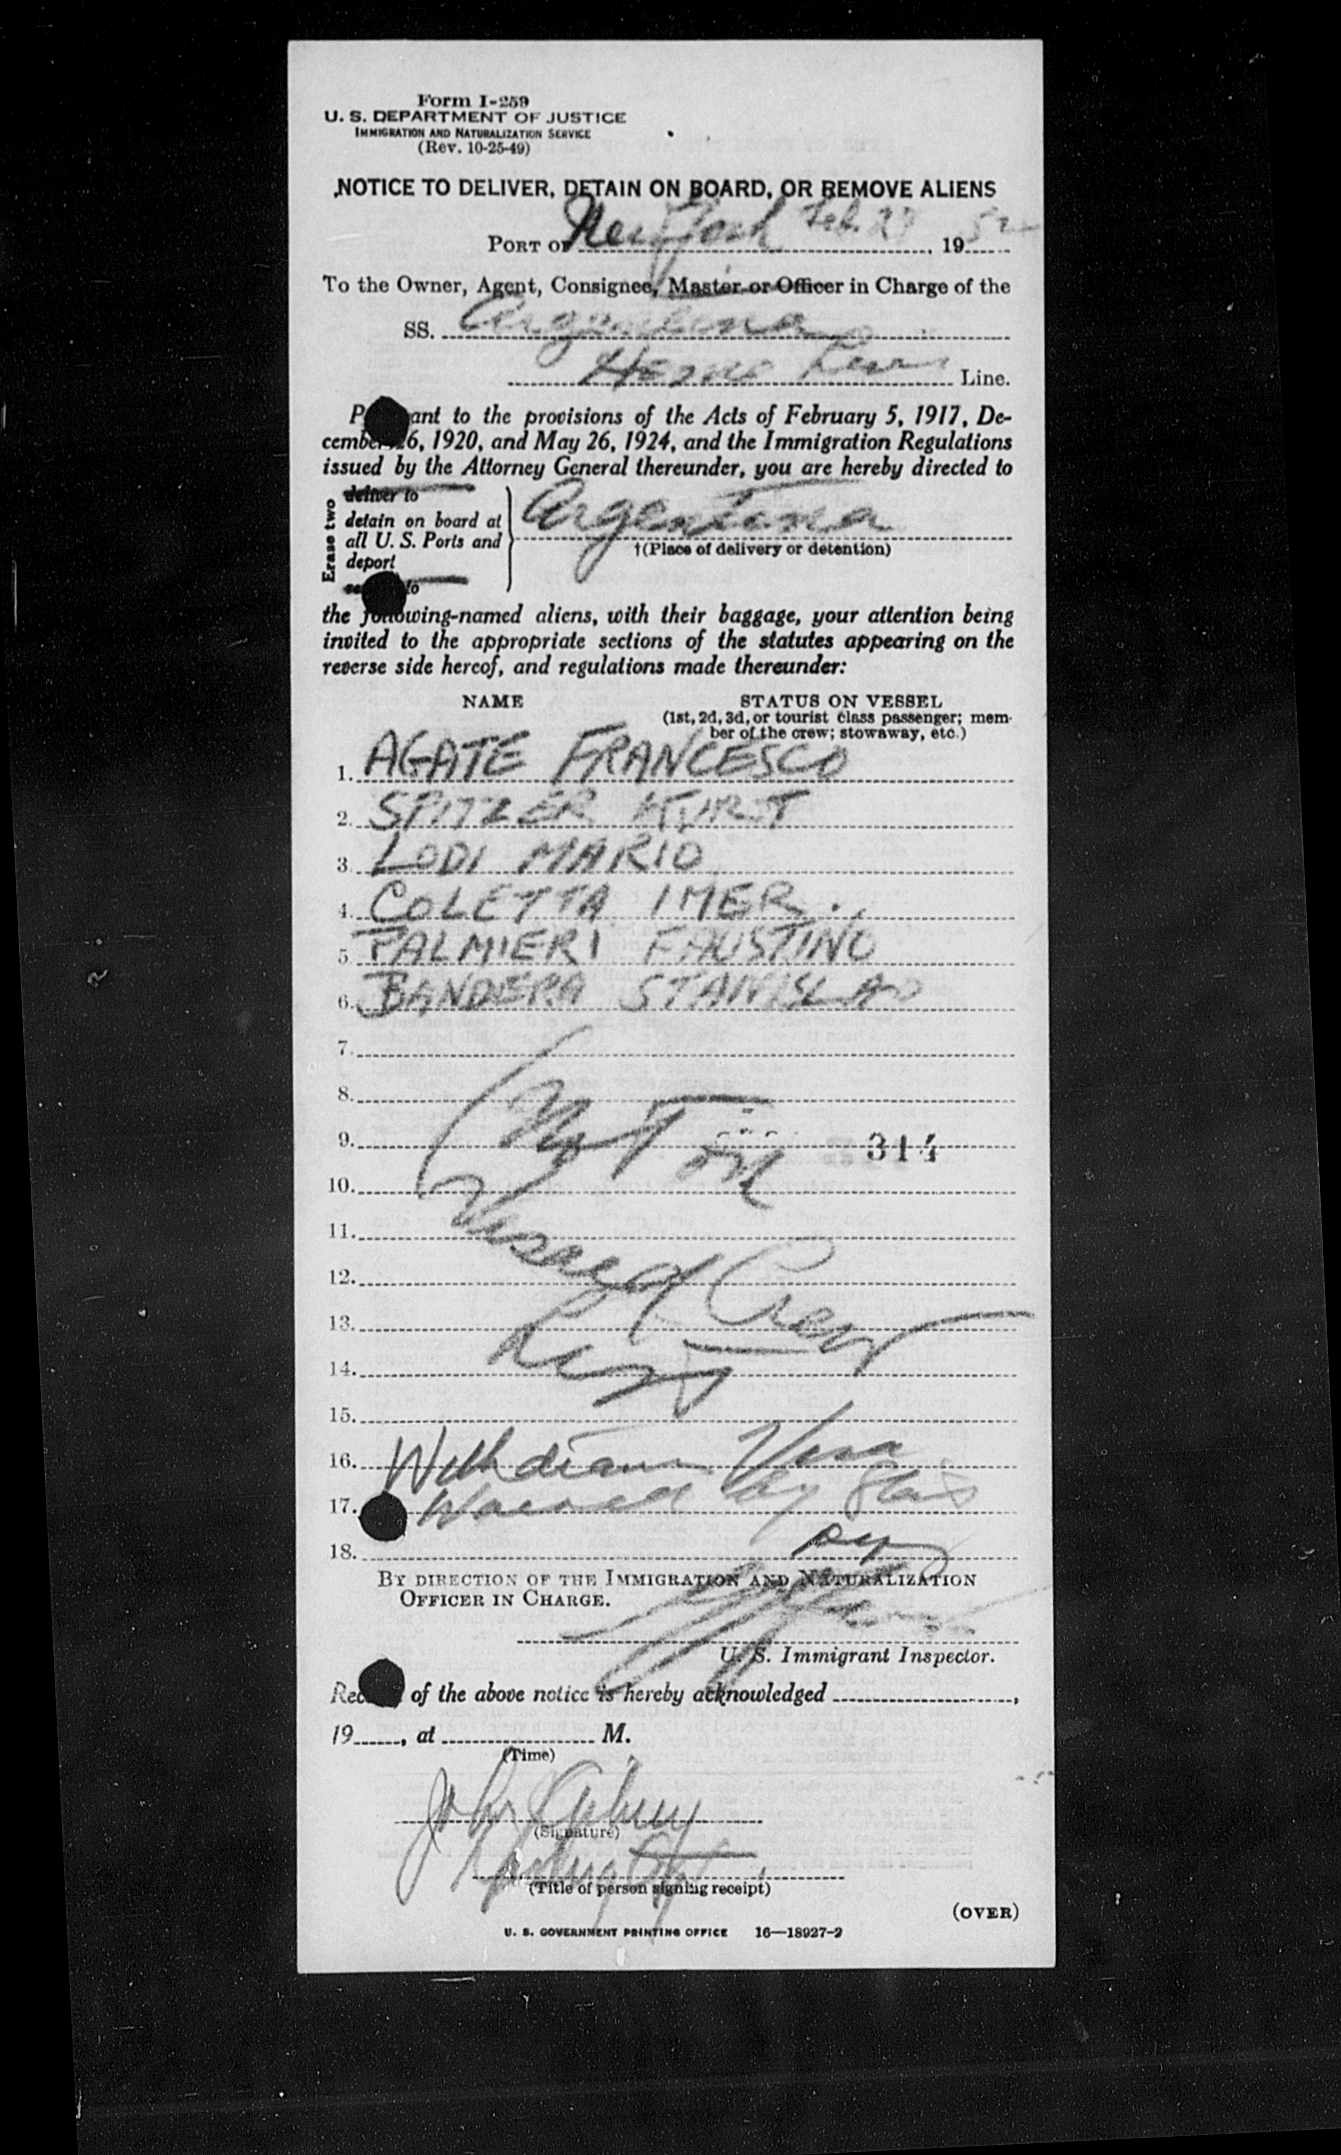 Form I-259
U. S. DEPARTMENT OF JUSTICE
IMMIGRATION AND NATURALIZATION SERVICE
(Rev. 10-25-49)
NOTICE TO DELIVER, DETAIN ON BOARD, OR REMOVE ALIENS
PORT OF New York Feb. 19 52
To the Owner, Agent, Consignee, Master or Officer in Charge of the
SS. Argentina
Home Line.
P ant to the provisions of the Acts of February 5, 1917, De-
cember 26, 1920, and May 26, 1924, and the Immigration Regulations
issued by the Attorney General thereunder, you are hereby directed to
Erase two
deliver to
detain on board at
all U. S. Ports and
deport
to
Argentina
†(Place of delivery or detention)
the following-named aliens, with their baggage, your attention being
invited to the appropriate sections of the statutes appearing on the
reverse side hereof, and regulations made thereunder:
NAME STATUS ON VESSEL
(1st, 2d, 3d, or tourist class passenger; mem-
ber of the crew; stowaway, etc.)
1. AGATE FRANCESCO
2. SPITZER KURT
3. LODI MARIO
4. COLETTA IMER.
5. PALMIERI FAUSTINO
6. BANDERA STANISLAO
7.
8.
9. Not on 314
10.
11. Visaed
12. Crew
13.
14. List
15.
16. Withdrawn Visa
17. Waived by
18.
BY DIRECTION OF THE IMMIGRATION AND NATURALIZATION
OFFICER IN CHARGE.
U. S. Immigrant Inspector.
Rec of the above notice is hereby acknowledged ,
19 , at M.
(Time)
John
(Signature)
(Title of person signing receipt)
(OVER)
U. S. GOVERNMENT PRINTING OFFICE 16—18927-2